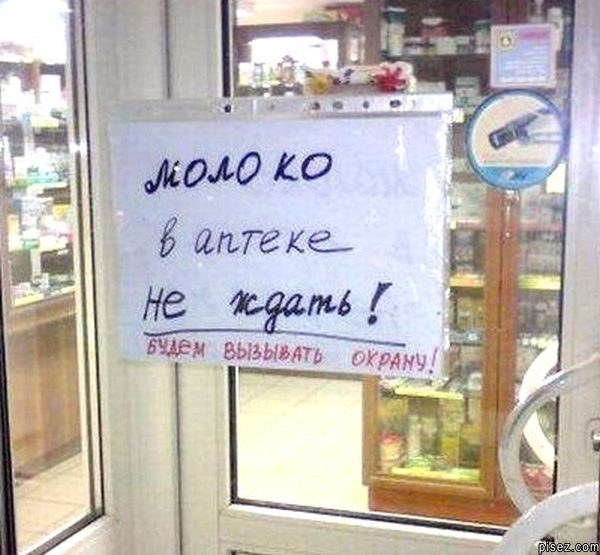 молоко
в аптеке
не ждать!
БУДЕМ ВЫЗЫВАТЬ ОХРАНУ!
pisez.com